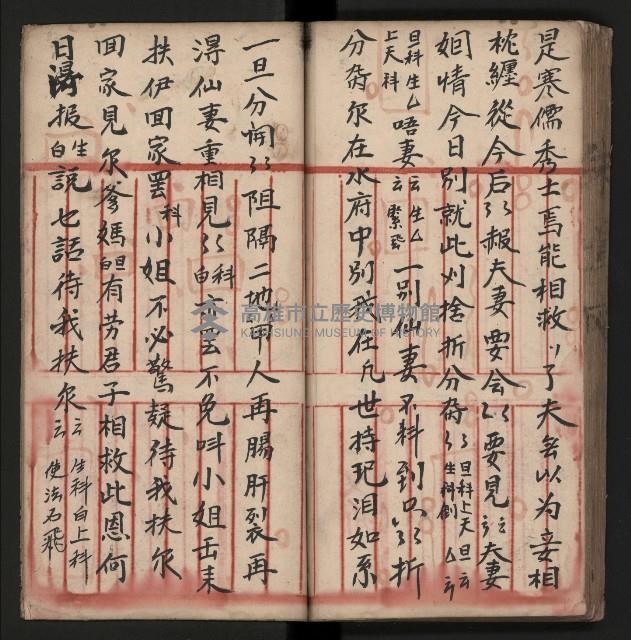 是寒儒秀士焉能相救〻了夫妾以为妾相
枕纏從今后〻叔夫妻要会〻要見〻云夫妻
姻情今日別就此刈捨折分旁〻旦科上天旦云生科倒
旦科生上天科唔妻云生緊飛一別仙妻不料到只〻折
分旁尔在水府中別我在凡世持玘泪如系
一旦分開〻阻隔二地甲人再腸肝裂再
淂仙妻重相見〻科白言罢不免叫小姐岳耒
扶伊囬家罢科小姐不必驚疑待我扶尔
囬家見尔爹媽旦白有劳君子相救此恩何
日淂报生白說乜話待我扶尔云生科白上科使法石飛
高雄市立歷史博物館
KAOHSIUNG MUSEUM OF HISTORY